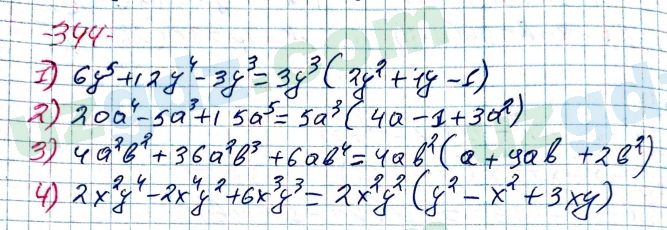 -344-
1) 6y⁵+12y⁴-3y³=3y³(2y²+4y-1)
2) 20a⁴-5a³+15a⁵=5a³(4a-1+3a²)
3) 4a²b²+36a²b³+6ab⁴=4ab²(a+9ab+2b²)
4) 2x²y⁴-2x⁴y²+6x³y³=2x²y²(y²-x²+3xy)